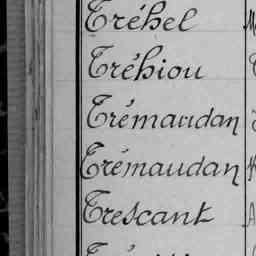 Tréhel
Tréhiou
Trémaudan
Trémaudan
Trescant